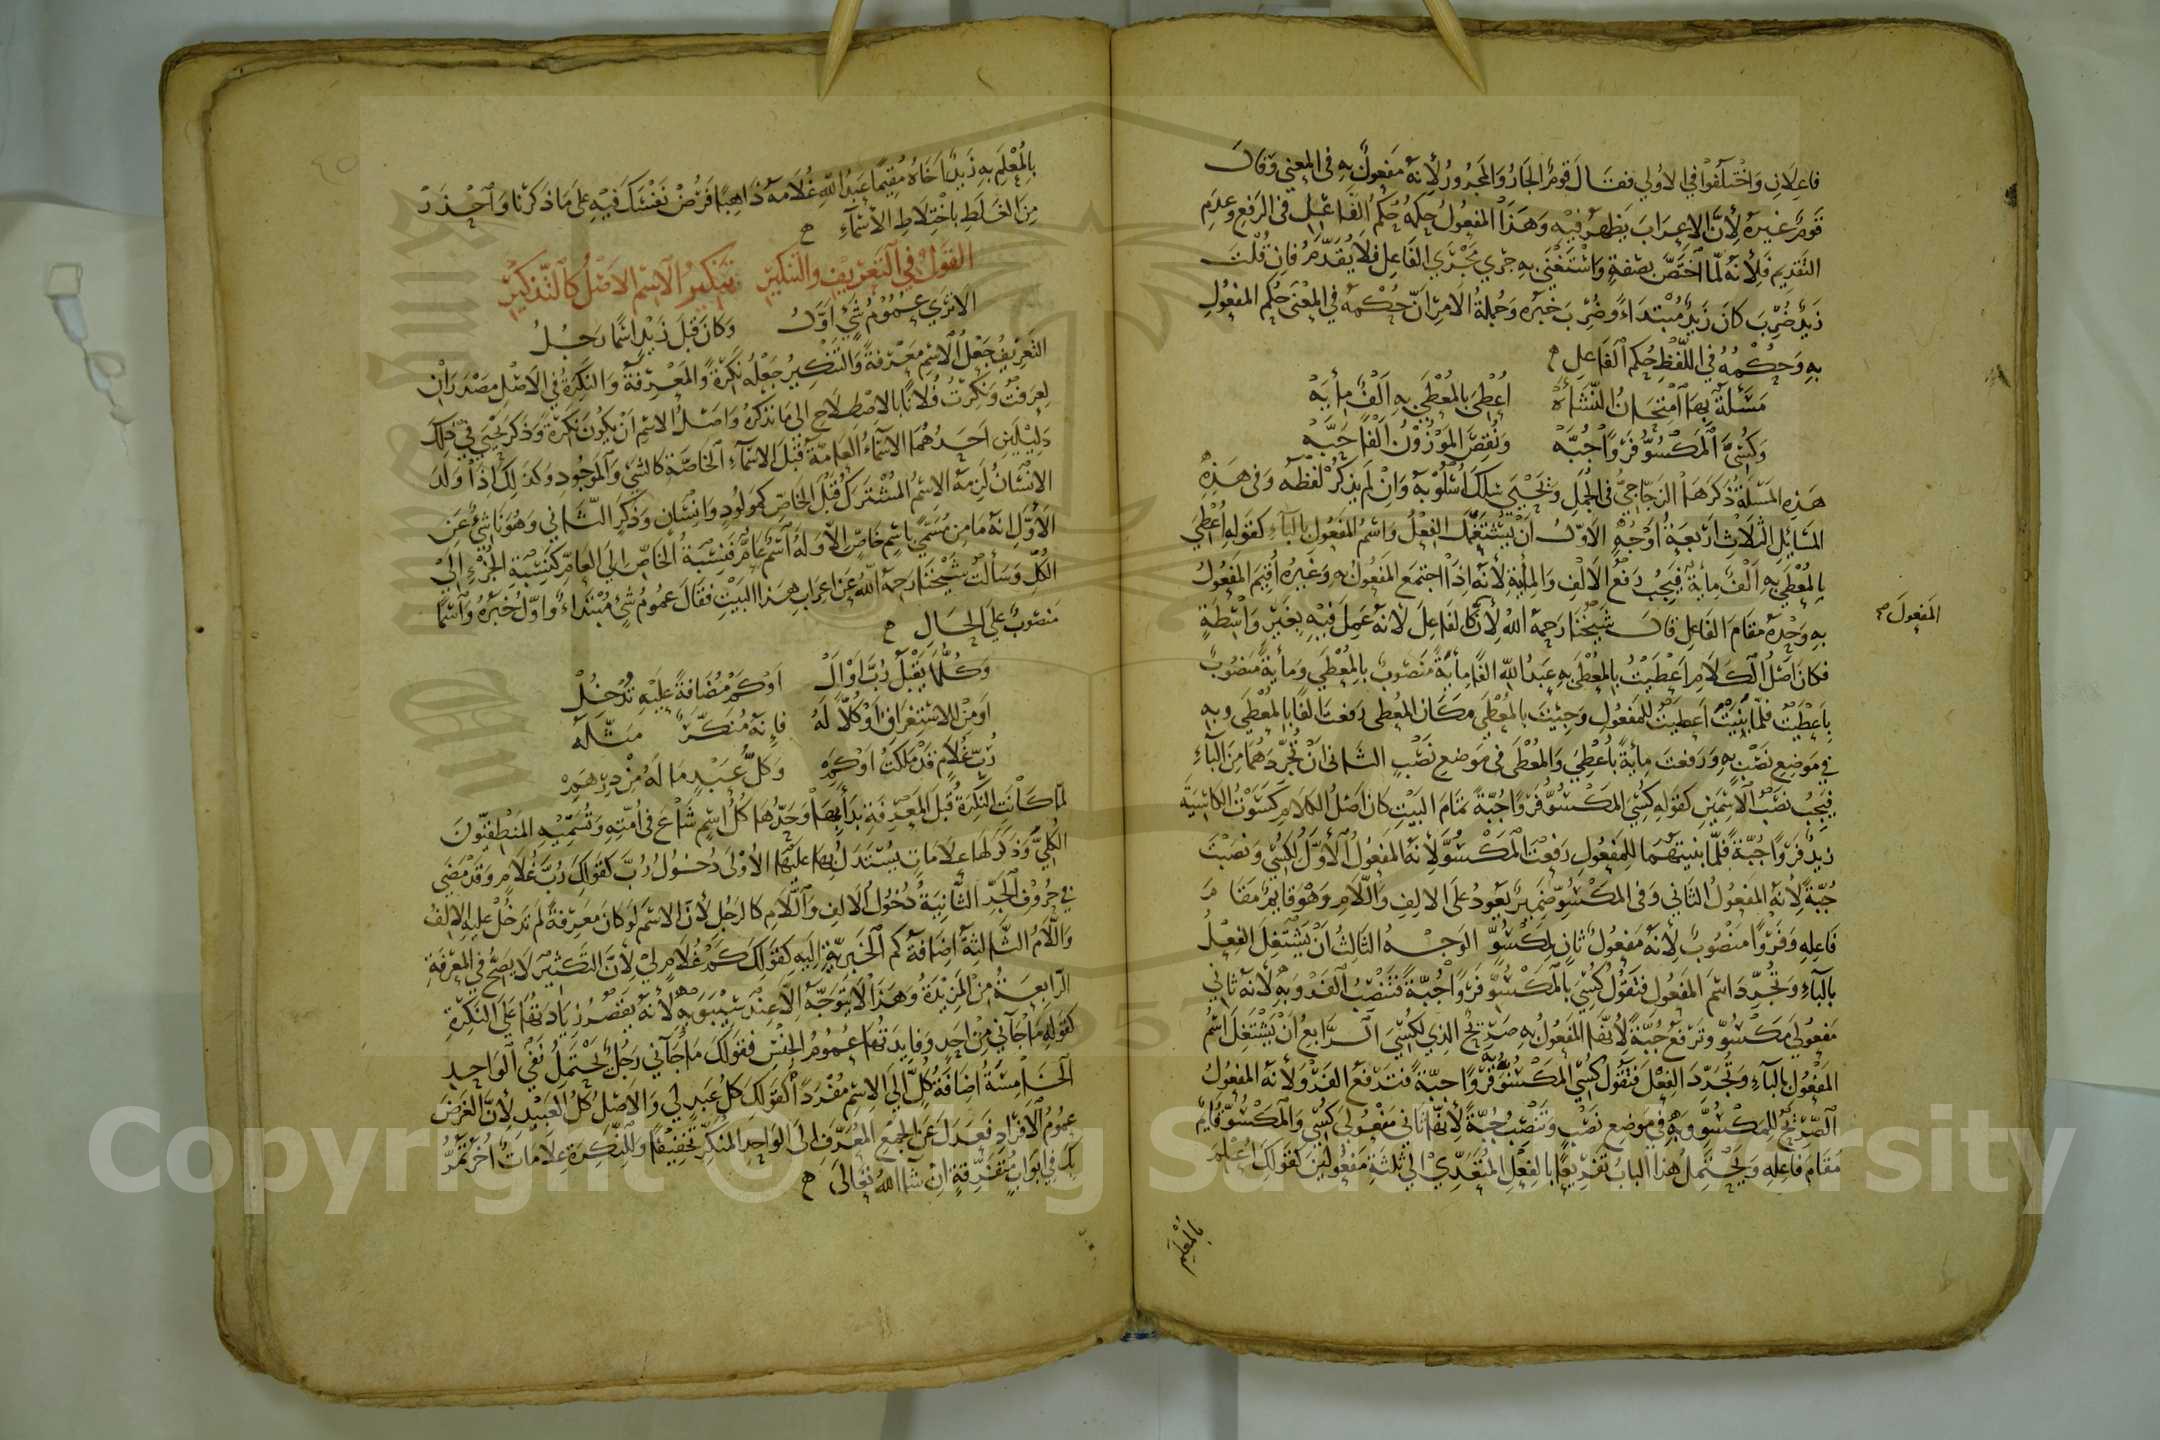 فاعلان واختلفوا في الاولي فقال قوم الجار والمجرور لانه مفعول به في المعني وقال
قوم غيره لأن الاعراب يظهر فيه وهذا المفعول حكمه حكم الفاعل في الرفع وعدم
التقديم فلأنه لما اختص بصفته واستغني به جري مجري الفاعل فلا يقدم فان قلت
زيد ضرب كان زيد مبتداء وضرب خبره وجملة الامر ان حكمه في المعنى حكم المفعول
به وحكمه في اللفظ حكم الفاعل
مسئلة بها امتحان النشأه اعطي بالمعطي به الف مأيه
وكسي المكسو فروا جبه ونقص الموزون الفا حبه
هذه المسئلة ذكرها الزجاجي في الجمل ويحيي سلك اسلوبه وان لم يذكر لفظه وفي هذه
المسائل الثلاث اربعة اوجه الاول ان يشتغل الفعل واسم المفعول بالباء كقوله اعطي
بالمعطي به الف مأية فيجب رفع الالف والمأية لأنه اذا اجتمع المفعول به وغيره اقيم المفعول
المفعول
به وحده مقام الفاعل قال شيخنا رحمه الله لأن كالفاعل لانه عمل فيه بغير واسطة
فكان اصل الكلام اعطيت بالمعطى به عبد الله الفا مأية منصوب بالمعطي ومأية منصوب
باعطيت فلما بنيت اعطيت للمفعول وجيت بالمعطي مكان المعطى رفعت الفا بالمعطي وبه
في موضع نصب به ورفعت مأية باعطي والمعطى في موضع نصب الثاني ان تجردهما من الباء
فيجب نصب الاسمين كقوله كسي المكسو فروا جبة تمام البيت كان اصل الكلام كسوت الكاسيه
زيد فروا جبة فلما بنيتهما للمفعول رفعت المكسو لأنه المفعول الأول لكسي ونصبت
جبة لأنه المفعول الثاني وفي المكسو ضمير يعود على الالف واللام وهو قايم مقام
فاعله وفروا منصوب لأنه مفعول ثان لمكسو الوجه الثالث ان يشتغل الفعل
بالباء وتجرد اسم المفعول فتقول كسي بالمكسو فروا جبة فتنصب الفرو به لأنه ثاني
مفعولي مكسو وترفع جبة لأنها المفعول به صريح الذي لكسي الرابع ان يشتغل اسم
المفعول بالباء وتجرد الفعل فتقول كسي المكسو به فروا جبة فترفع الفرو لأنه المفعول
الصريح للمكسو وبه في موضع نصب وتنصب جبة لأنها ثاني مفعولي كسي والمكسو قايم
مقام فاعله ويحتمل هذا الباب تفريعا بالفعل المتعدي الي ثلثة مفعولين كقولك اعلم
بالمعلم
بالمعلم به زيد اخاه مقيما عبد الله غلامه ذاهبا فرض نفسك فيه على ما ذكرنا واحذر
من الغلط باختلاط الأسماء
القول في التعريف والتنكير تنكير الاسم الاصل كالتذكير
الا تري عموم شي اول وكان قبل زيد اسما رجل
التعريف جعل الاسم معرفة والتنكير جعله نكرة والمعرفة والنكرة في الاصل مصدران
لعرفت ونكرت فلانا بالاصطلاح الى ما نذكره واصل الاسم ان يكون نكرة وذكر يحيي في ذلك
دليلين احدهما الاسماء العامة قبل الاسماء الخاصة كالشي والموجود وكذلك اذا ولد
الانسان لزمه الاسم المشترك قبل الخاص كمولود وانسان وذكر الثاني وهو ناشئ عن
الأول انه ما من مسمي باسم خاص الا وله اسم عام فنسبة الخاص الى العام كنسبة الجزء الى
الكل وسألت شيخنا رحمه الله عن اعراب هذا البيت فقال عموم شئ مبتداء واول خبره واسما
منصوب على الحال
وكلما يقبل رب او ال او كم مضافة عليه تدخل
او من الاستغراق او كلا له فانه منكر مثله
رب غلام قد ملكت او كم وكل عبد ما له من درهم
لما كانت النكرة قبل المعرفة بدأ بها وحدها كل اسم شاع في امته وتسميه المنطقيون
الكلي وذكر لها علامات يستدل بها عليها الاولى دخول رب كقولك رب غلام وقد مضى
في حروف الجر الثانية دخول الالف واللام كالرجل لأن الاسم لو كان معرفة لم تدخل عليه الالف
واللام الثالثة اضافة كم الخبرية اليه كقولك كم غلام لي لأن التكثير لا يصح في المعرفة
الرابعة من المزيدة وهذا لا يتوجه الا عند سيبويه لأنه يقصر زيادتها على النكرة
كقوله ما جآني من احد وفايدتها عموم الجنس فقولك ما جآني رجل يحتمل نفي الواحد
الخامسة اضافة كل الي الاسم مفردا كقولك كل عبد لي والاصل كل العبيد لأن الغرض
عموم الافراد فعدل عن الجمع المعرف الى الواحد المنكر تخفيفا وللنكرة علامات اخر تمر
بك في ابواب متفرقة ان شا الله تعالى
Copyright © King Saud University